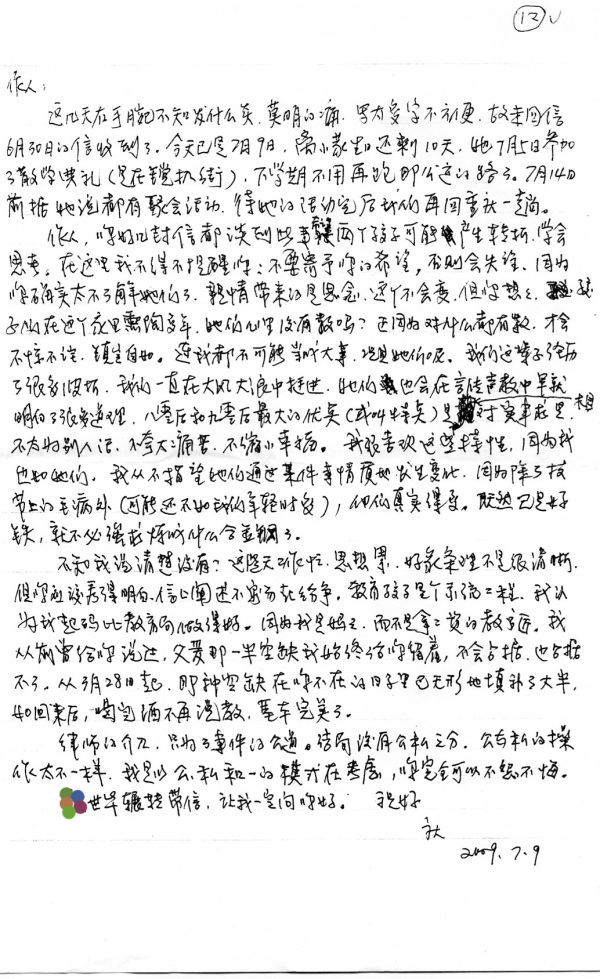 ⑫
作人：
这几天右手腕不知发什么炎，莫明的痛，男方多字不方便，故未回信
6月30日的信收到了。今天已是7月9日，离小蒙生日还剩10天，她7月5日参加
了散学典礼（是在登机街），下学期不用再跑那么远的路了。7月14日
前据她说都有聚会活动，待她的活动完后我们再回重庆一趟。
作人，你好几封信都谈到此事 两个孩子可能产生转折，学会
思考。在这里我不得不提醒你：不要寄予你的希望，否则会失望。因为
你确实太不了解她们了。亲情带来的是思念，这个不会变，但你想想，孩
子们在这个家里熏陶多年，她们心里没有数吗？正因为对什么都有数，才会
不惊不诧，镇定自如。连我都不可能当成大事，况且她们呢。我们这辈子经历
了很多波折，我们一直在大风大浪中挺进，她们也会在言传声教中早就
明白了很多道理，八零后和九零后最大的优点（或叫特点）是 对实事求是，相
不太为别人活，不夸大痛苦，不缩小幸福。我很喜欢这些特性，因为我
也如她们。我从不指望她们通过某件事情质地发生变化，因为除了枝
节上的毛病外（可能还不如我们年轻时多），她们真实得多。既然已是好
铁，就不必强求炼成什么合金钢了。
不知我说清楚没有？这些天工作忙，思想累，好象条理不是很清晰，
但你应该看得明白，信上阐述不穷无纷争。教育孩子是个系统工程，我认
为我起码比教育局做得好。因为我是妈妈，而不是拿工资的教育匠。我
从前曾给你说过，父爱那一半空缺我始终给你留着，不会占据，也占据
不了。从3月28日起，那种空缺在你不在的日子里已无形地填补了大半，
如回来后，喝完酒不再说教，基本完美了。
律师的介入，只为了事件的公道。结局没有公私之分，公与私的操
作太不一样，我是以公、私和一的模式在考虑，你完全可以不怨不悔。
世华辗转带信，让我一定问你好。 祝好
2009.7.9